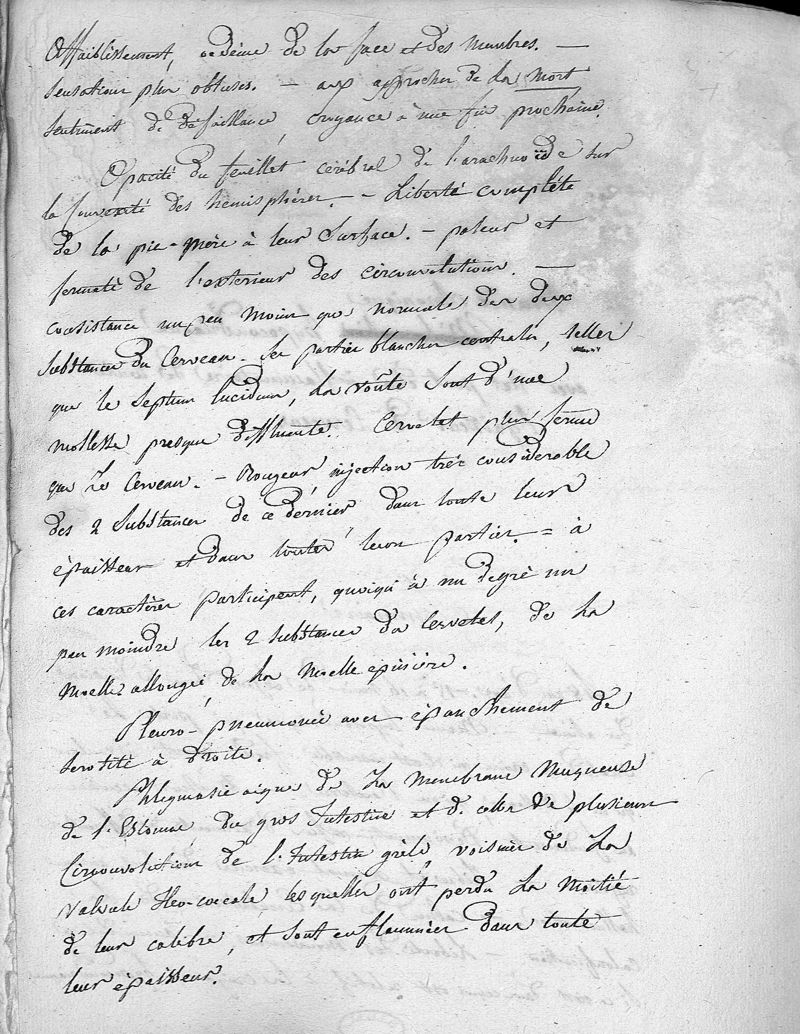 affaiblissement, œdème de la face et des membres. —
sensations plus obtuses. — aux approches de la mort
sentiment de défaillance, croyance à une fin prochaine.
Opacité du feuillet cérébral de l'arachnoïde sur
la convexité des hémisphères. — Liberté complète
de la pie-mère à leur surface. — paleur et
fermeté de l'exterieur des circonvolutions. —
consistance un peu moins que normale des deux
substances du cerveau. Ses parties blanches centrales, telles
que le septum lucidum, la voûte sont d'une
mollesse presque diffluente. Cervelet plus ferme
que le cerveau. — Rougeur, injection très considérable
des 2 substances de ce dernier, dans toute leur
épaisseur et dans toutes leurs parties. = à
ces caractères participent, quoiqu'à un degré un
peu moindre les 2 substances du cervelet, de la
moelle allongée, de la moelle épinière.
Pleuro-pneumonie avec épanchement de
serosité à droite.
Phlegmasie aigue de la membrane muqueuse
de l'Estomac, du gros Intestin et de celle de plusieurs
Circonvolutions de l'Intestin grêle, voisines de la
valvule Iléo-cœcale, lesquelles ont perdu la moitié
de leur calibre, et sont enflammées dans toute
leur épaisseur.